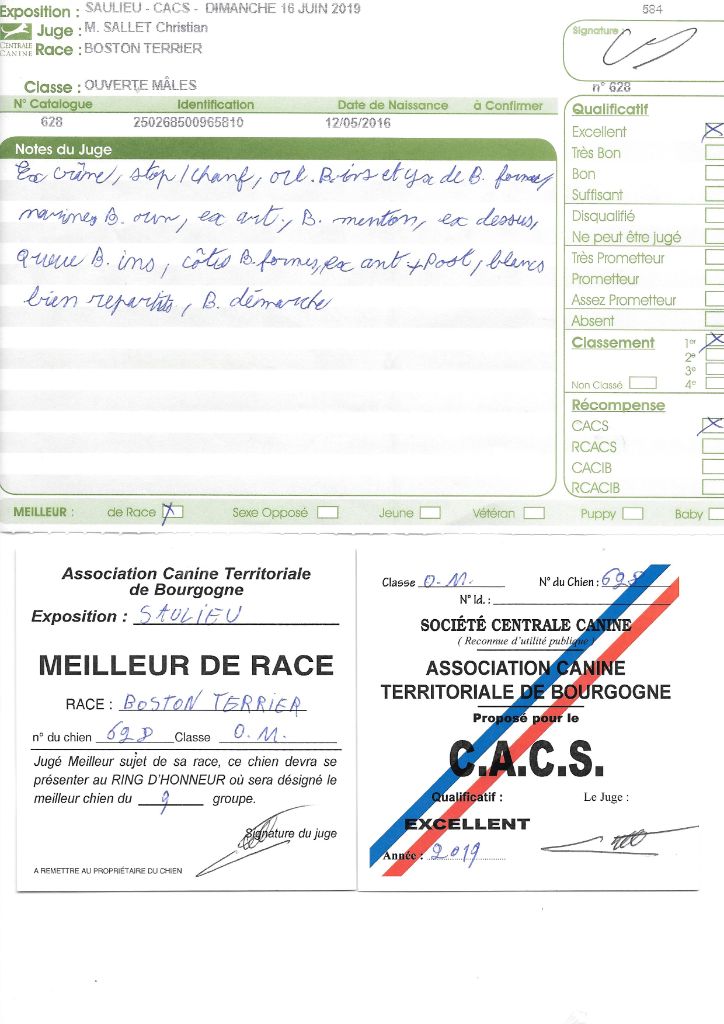 Exposition : SAULIEU - CACS - DIMANCHE 16 JUIN 2019
584
Juge : M. SALLET Christian
CENTRALE CANINE
Race : BOSTON TERRIER
Signature
Classe : OUVERTE MÂLES
n° 628
N° Catalogue Identification Date de Naissance à Confirmer
628 250268500965810 12/05/2016
Notes du Juge
Ex crâne, stop / chanf, orl. B. ins et yx de B. forme,
narines B. ouv, ex art., B. menton, ex dessus,
queue B. ins, côtes B. formes, ex ant + Post, blancs
bien repartis, B. démarche
Qualificatif
Excellent
Très Bon
Bon
Suffisant
Disqualifié
Ne peut être jugé
Très Prometteur
Prometteur
Assez Prometteur
Absent
Classement 1er
2e
3e
Non Classé 4e
Récompense
CACS
RCACS
CACIB
RCACIB
MEILLEUR : de Race Sexe Opposé Jeune Vétéran Puppy Baby
Association Canine Territoriale
de Bourgogne
Exposition : SAULIEU
MEILLEUR DE RACE
RACE : BOSTON TERRIER
n° du chien 628 Classe O.M.
Jugé Meilleur sujet de sa race, ce chien devra se
présenter au RING D'HONNEUR où sera désigné le
meilleur chien du 9 groupe.
Signature du juge
A REMETTRE AU PROPRIÉTAIRE DU CHIEN
Classe O.M. N° du Chien : 628
N° Id. :
SOCIÉTÉ CENTRALE CANINE
( Reconnue d'utilité publique )
ASSOCIATION CANINE
TERRITORIALE DE BOURGOGNE
Proposé pour le
C.A.C.S.
Qualificatif : Le Juge :
EXCELLENT
Année : 2019